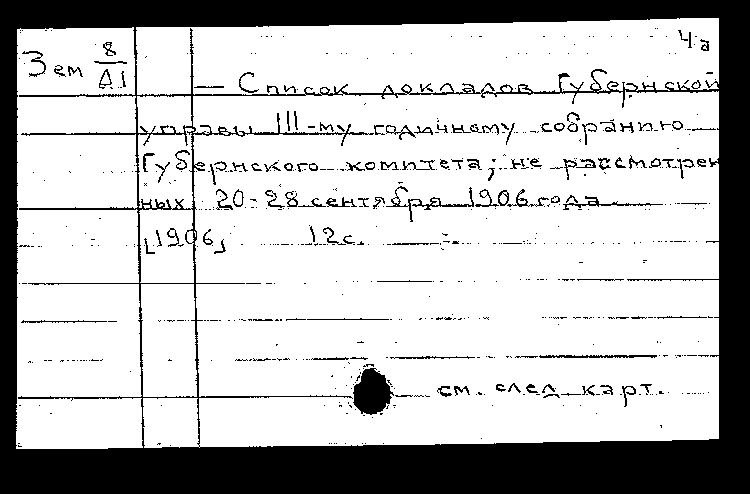 4а
Зем 8/А1
— Список докладов Губернской
управы III-му годичному собранию
Губернского комитета; не рассмотрен
ных 20-28 сентября 1906 года.
[1906] 12 с.
см. след. карт.